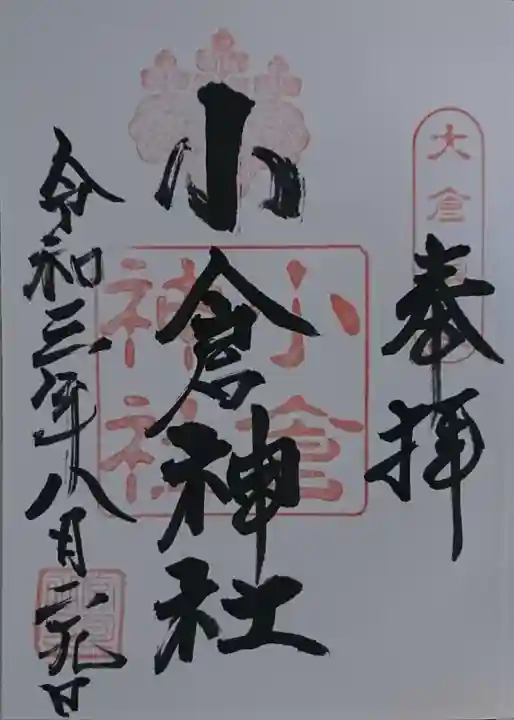 奉拝
小倉神社
令和三年八月二九日
小倉
神社
大倉